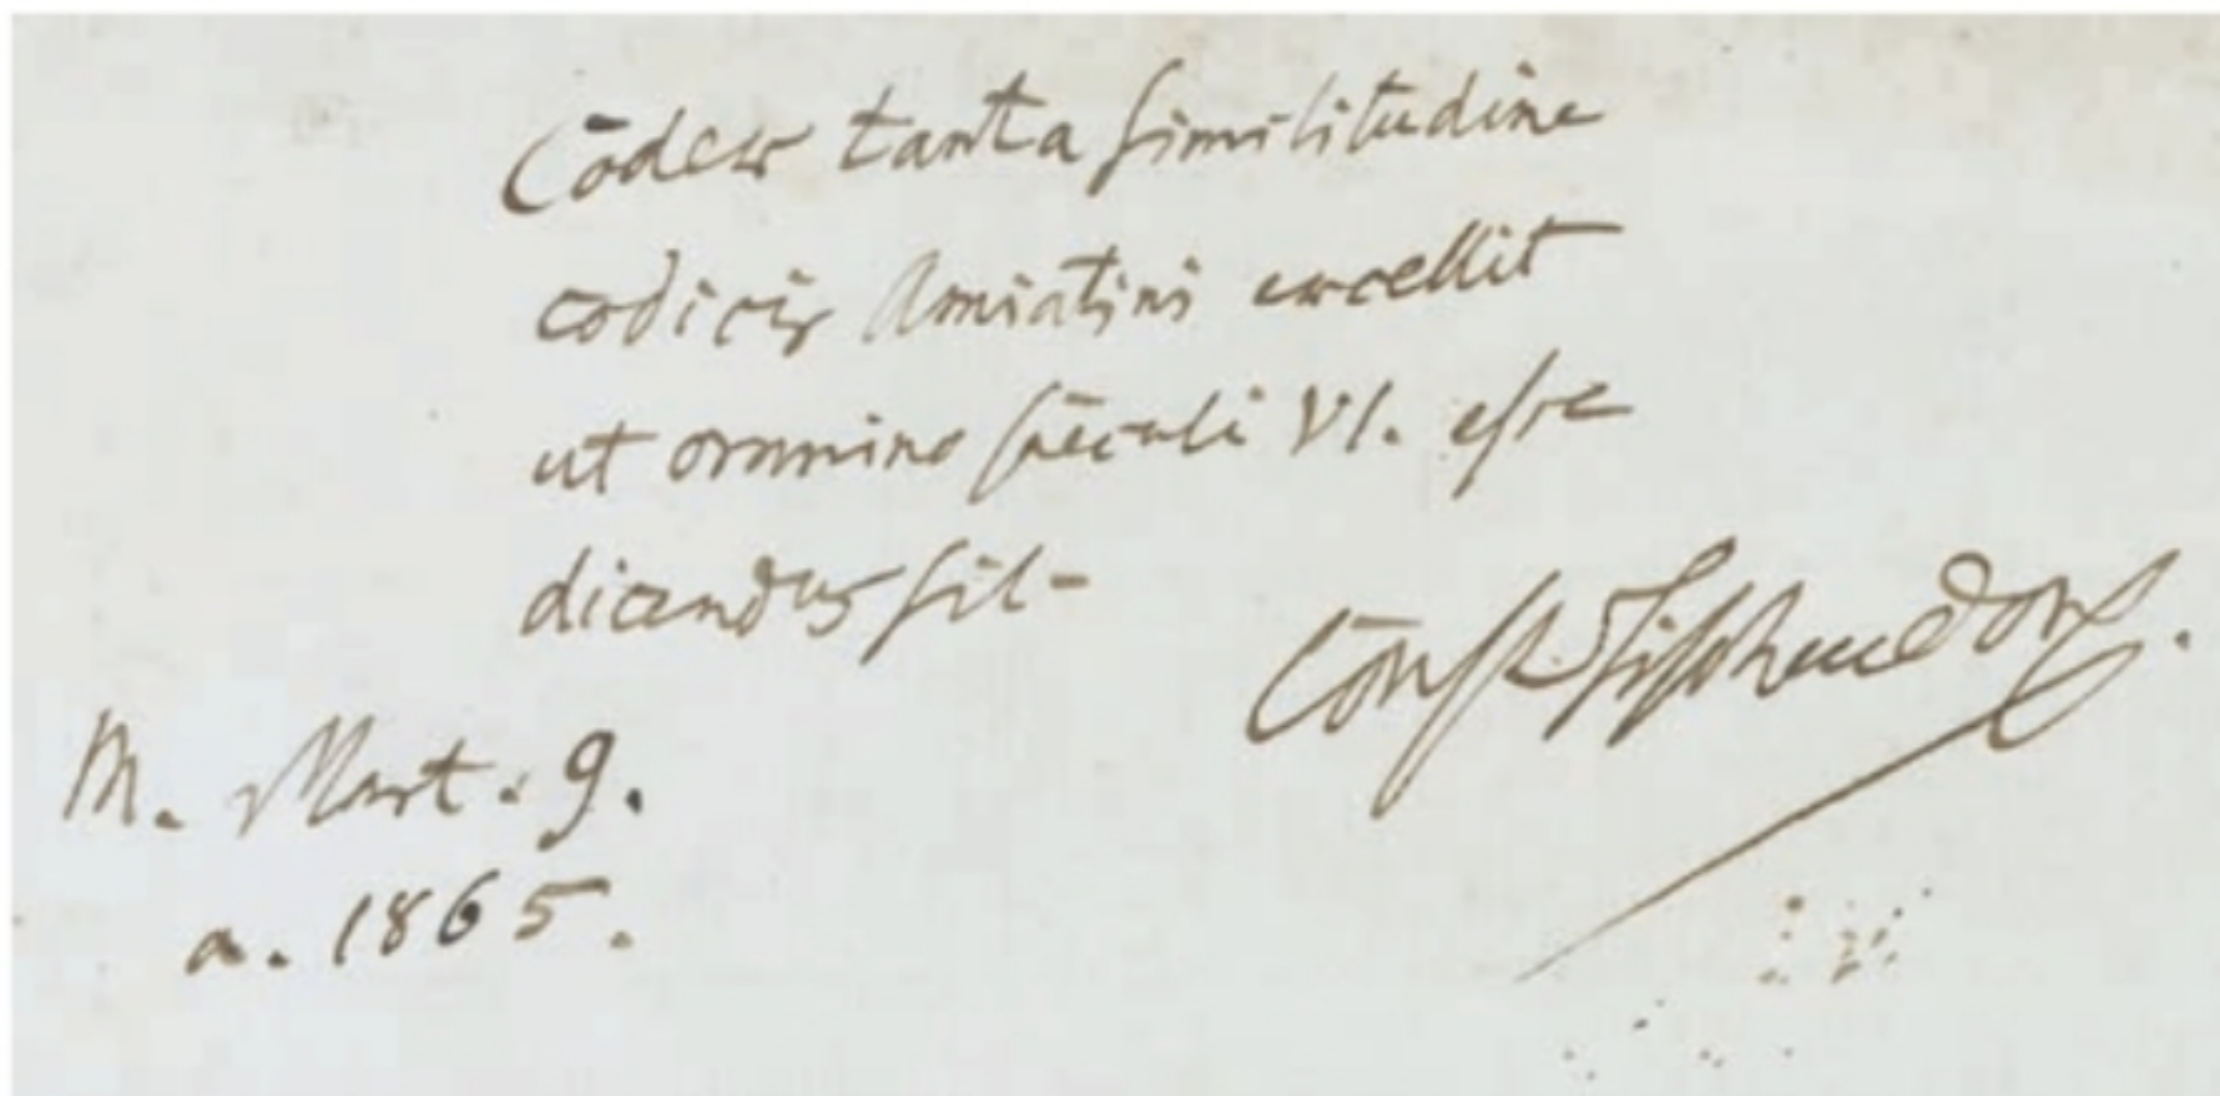 Codex tanta similitudine
codicis Amiatini excellit
ut omnino saeculi VI. esse
dicendus sit-
Const. Tischendorf.
M. Mart. 9.
a. 1865.